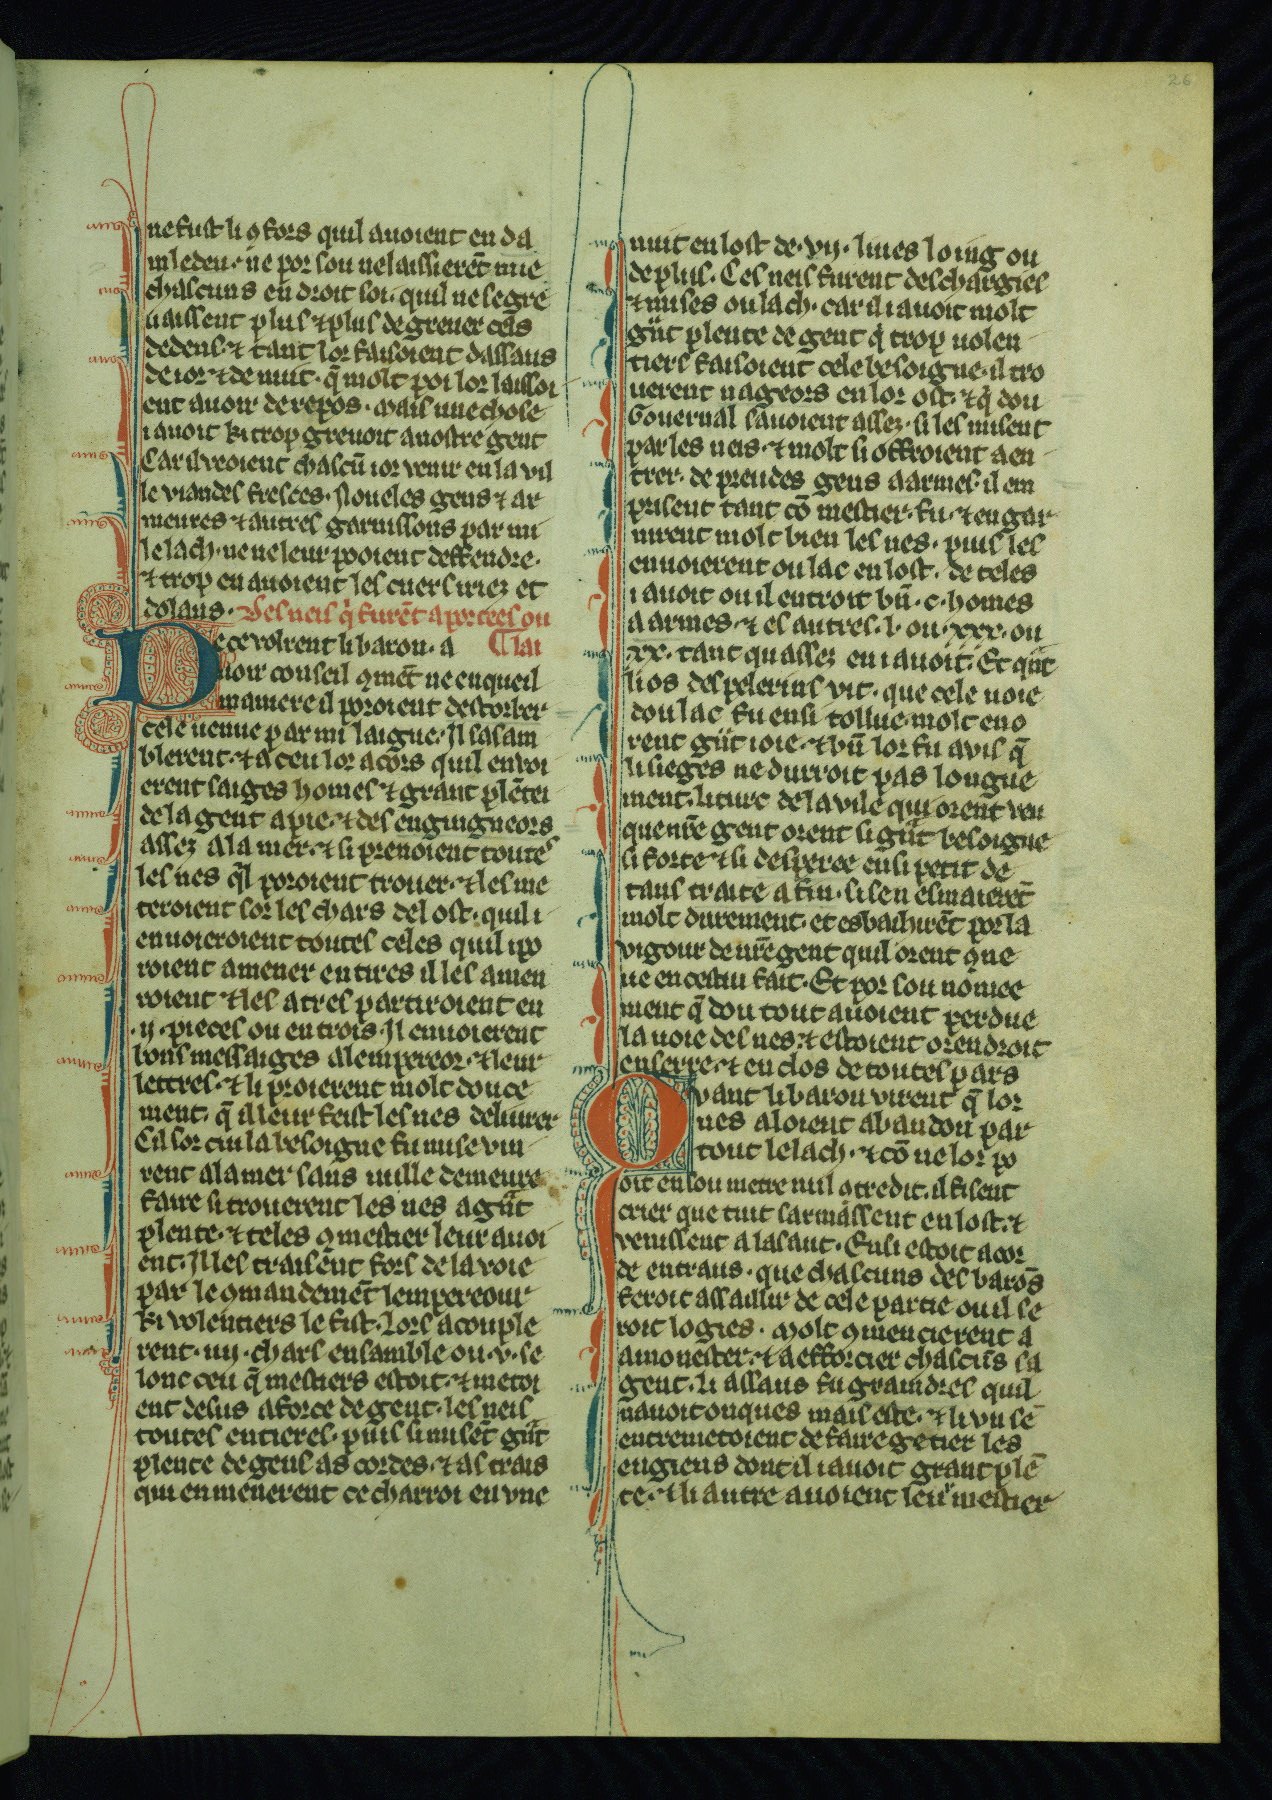 26
ne fust li ꝯfors quil auoient en da
mledeu· ne por sou ne laissierēt mie
chascuns en droit soi· quil ne segre
uaissent plus ⁊ plus de greuer cels
dedens· ⁊ tant lor faisoient dassaus
de ior ⁊ de nuit· q̄ molt poi lor laissoi
ent auoir de repos· Mais une chose
i auoit ki trop greuoit a nostre gent
Car il veoient chascū ior venir en la vil
le viandes fresces· Noueles gens ⁊ ar
meures ⁊ autres garnissons par mi
le lach· ne ne leur pooient deffendre·
⁊ trop en auoient les cuers iriez et
dolans· Des neis q̇ furēt aportees ou
De ce volrent li baron· a lai
uoir conseil ꝯmēt ne en queil
maniere il poroient destorber
cele uenue par mi laigue· Il sasam
blerent· ⁊ a ceu lor acors quil enuoi
erent saiges homes ⁊ grant plētei
de la gent a pie· ⁊ des enguigneors
assez a la mer· ⁊ si prenoient toutes
les nes q̇l poroient trouer· ⁊ les me
teroient sor les chars del ost· quil i
enuoieroient toutes celes quil i po
roient amener entires il les amen
roient ⁊ les atres partiroient en
·ij· pieces ou en trois· Il enuoierent
bons messaiges al empereor· ⁊ leur
lettres· ⁊ li proierent molt douce
ment· q̄ il leur feist les nes deliurer
Cil sor cui la besoigne fu mise vin
rent a la mer sans nulle demeure
faire si trouerent les nes a gn̄t
plente· ⁊ teles ꝯ mestier leur auoi
ent· Il les traisent fors de la voie
par le ꝯmandemēt lempereour
ki volentiers le fist· Lors acouple
rent· iiij· chars ensamble ou·v· se
lonc ceu q̄ mestiers estoit· ⁊ metoi
ent desus a force de gent· les neis
toutes entieres· puis si misēt gn̄t
plente de gens as cordes· ⁊ as trais
qui en menerent ce charroi en vne
nuit en lost de·vij· liues loing ou
de plus· Ces neis furent deschargies
⁊ mises ou lach· car il i auoit molt
gn̄t plente de gent q̇ trop uolen
tiers faisoient cele besoigne· il tro
uerent nageors en lor ost· ⁊ q̇ dou
Gouernal sauoient assez· si les misent
par les neis· ⁊ molt si offroient a en
trer· de preudes gens a armes· il em
prisent tant cō mestier fu· ⁊ en gar
nirent molt bien les nes· puis les
enuoierent ou lac en lost· de celes
i auoit ou il entroit bn̄·c·homes
a armes· ⁊ es autres·l· ou·xxx· ou
xx· tant quassez en i auoit· Et qn̄t
li os des pelerins vit· que cele uoie
dou lac fu ensi tollue· molt en o
rent gn̄t ioie· ⁊ bn̄ lor fu avis q̄
li sieges ne durroit pas longue
ment· li turc de la vile qui orent veu
que nr̄e gent orent si gn̄t besoigne
si forte ⁊ si desperee en si petit de
tans traite a fin· si sen esmaierēt
molt durement· et esbahirēt por la
vigour de nr̄e gent quil orent ꝯne
ue en cestui fait· Et por sou nōmee
ment q̄ dou tout auoient perdue
la uoie des nes· ⁊ estoient orendroit
enserre· ⁊ en clos de toutes pars
Qvant li baron virent q̄ lor
nes aloient abandon par
tout le lach· ⁊ cō ne lor po
oit en sou metre nul ꝯtredit· il fisent
crier que tuit sarmassent en lost· ⁊
venissent a lasaut· Ensi estoit acor
de entraus· que chascuns des barōs
feroit assaillir de cele partie ou il se
roit logies· Molt ꝯmencierent a
amonester· ⁊ a efforcier chascūs sa
gent· li assaus fu graindres quil
nauoit onques mais este· ⁊ li vn se
entremetoient de faire getier les
engiens dont il i auoit grant plē
te· ⁊ li autre auoient leur mestier